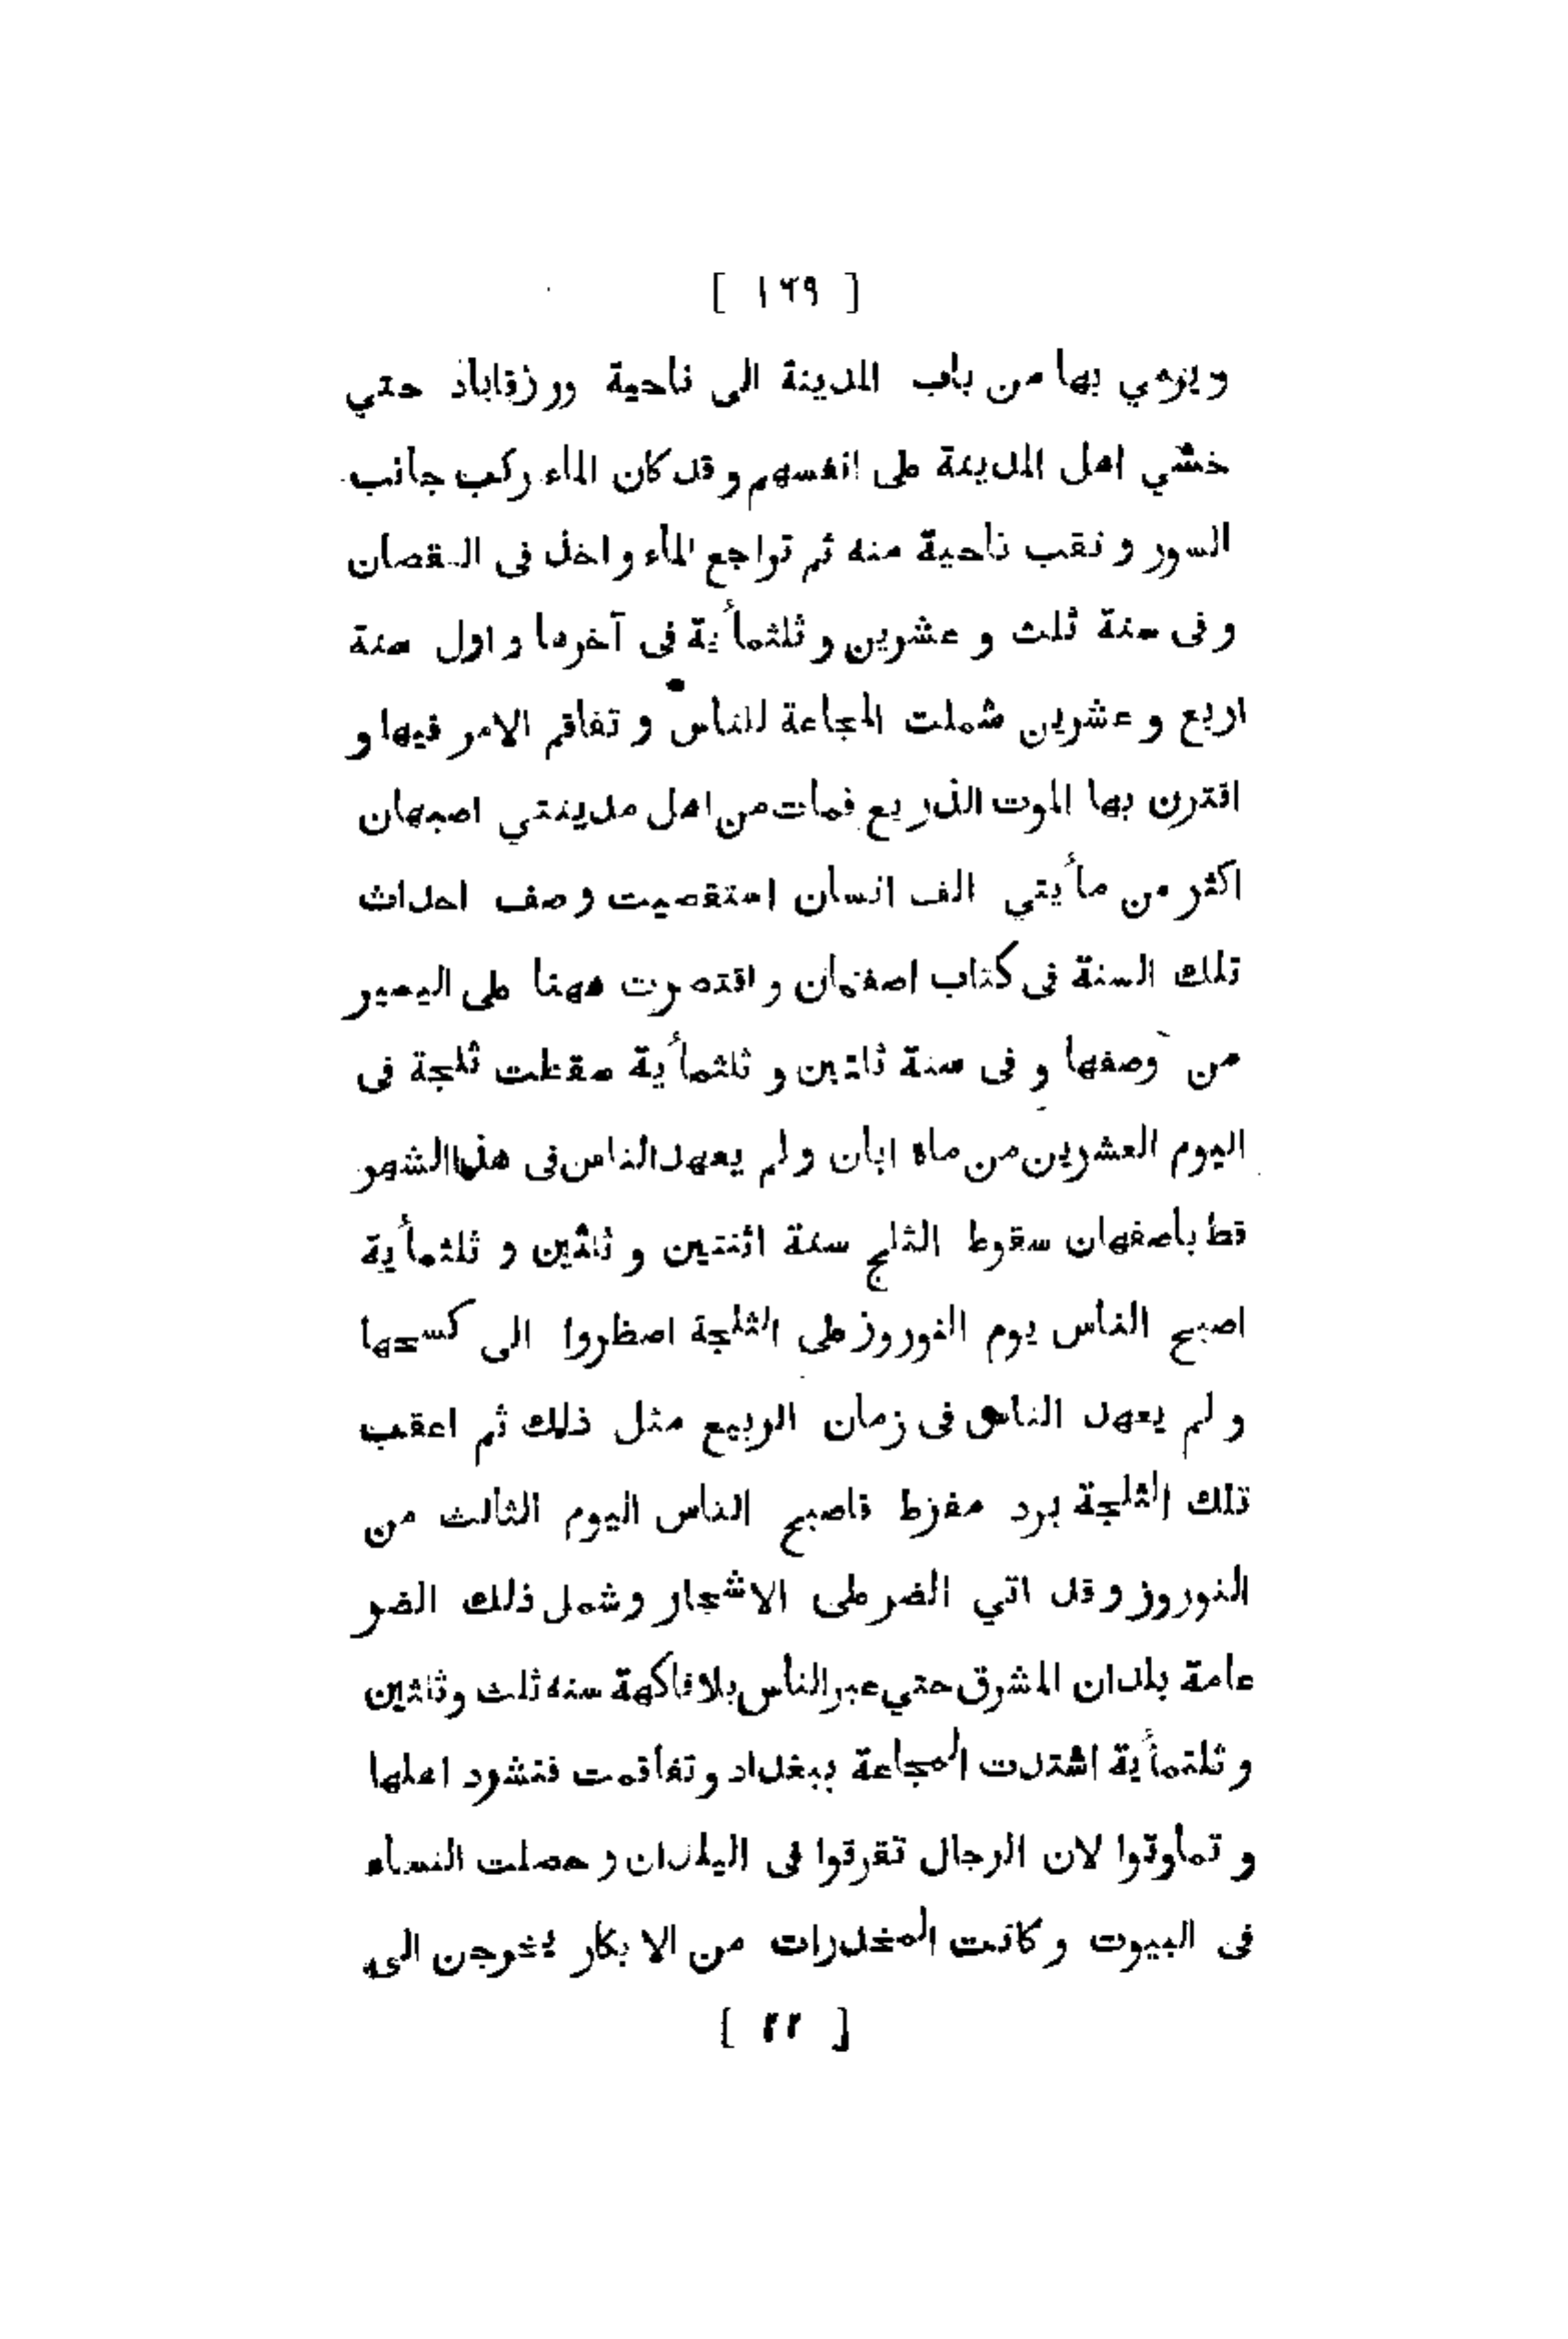 [ ١٦٩ ]
ويرمي بها من باب المدينة الى ناحية ورزقاباذ حتي
خشي اهل المدينة على انفسهم وقد كان الماء ركب جانب
السور و نقب ناحية منه ثم تواجع الماء و اخذ فى النقصان
و فى سنة ثلث و عشرين و ثلثمأية فى آخرها و اول سنة
اربع و عشرين شملت المجاعة للناس و تفاقم الامر فيها و
اقترن بها الموت الذريع فمات من اهل مدينتي اصبهان
اكثر من مأيتي الف انسان استقصيت وصف احداث
تلك السنة فى كتاب اصفهان و اقتصرت ههنا على اليسير
من وصفها و فى سنة ثلثين و ثلثمأية سقطت ثلجة فى
اليوم العشرين من ماه ابان و لم يعهد الناس فى هذا الشهر
قط بأصفهان سقوط الثلج سنة اثنتين و ثلثين و ثلثمأية
اصبح الناس يوم النوروز على الثلجة اضطروا الى كسحها
و لم يعهد الناس فى زمان الربيع مثل ذلك ثم اعقب
تلك الثلجة برد مفرط فاصبح الناس اليوم الثالث من
النوروز و قد اتي الضر على الاشجار و شمل ذلك الضر
عامة بلدان المشرق حتي عبر الناس بلا فاكهة سنه ثلث و ثلثين
و ثلثمأية اشتدت المجاعة ببغداد و تفاقمت فتشرد اهلها
و تماوتوا لان الرجال تفرقوا فى البلدان و حصلت النساء
فى البيوت و كانت المخدرات من الابكار يخرجن الى
[ ٢٢ ]